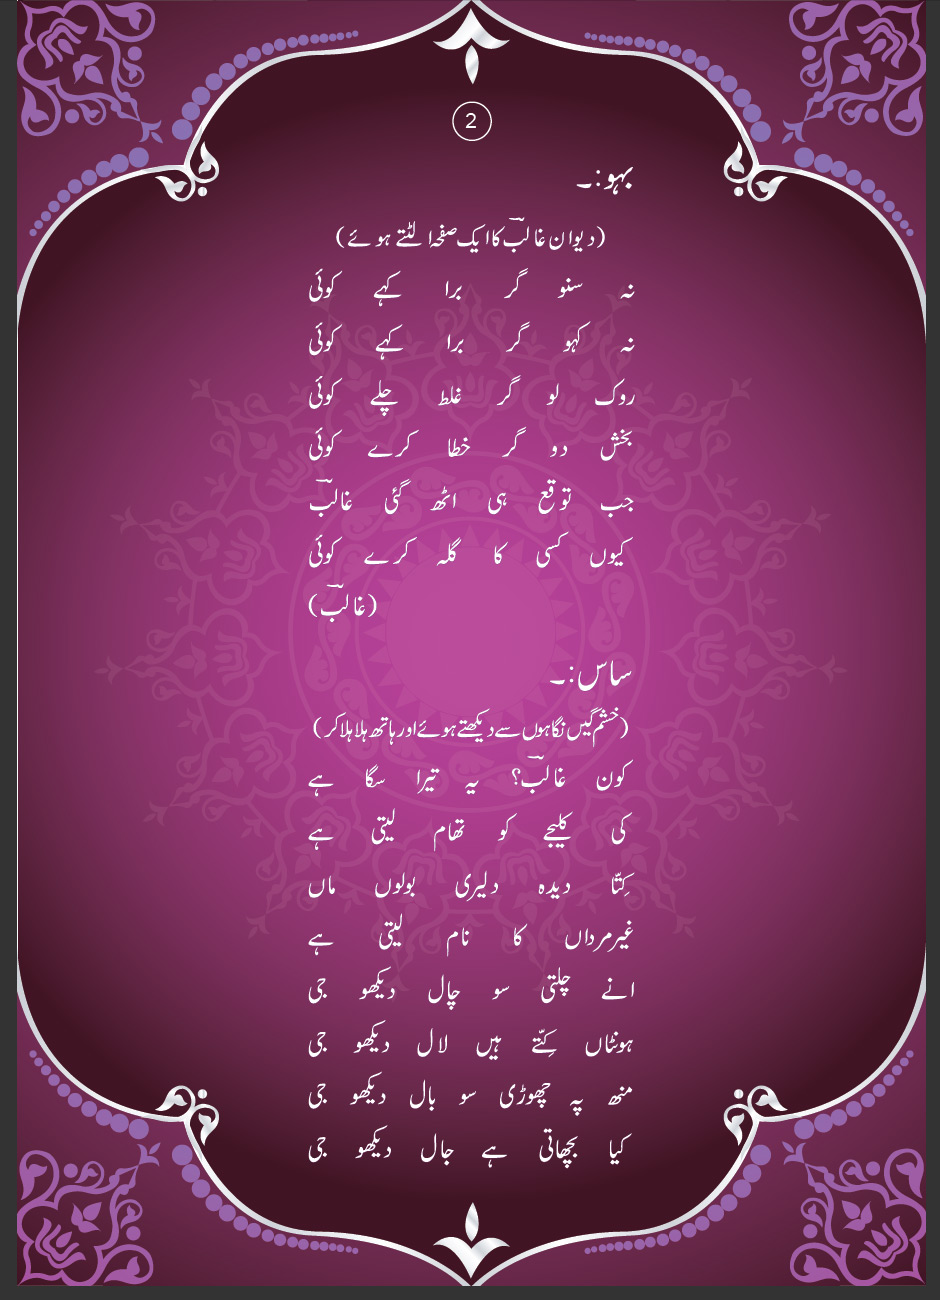 2
بہو:۔
(دیوان غالبؔ کا ایک صفحہ الٹتے ہوئے)
نہ سنو گر برا کہے کوئی
نہ کہو گر برا کہے کوئی
روک لو گر غلط چلے کوئی
بخش دو گر خطا کرے کوئی
جب توقع ہی اٹھ گئی غالبؔ
کیوں کسی کا گلہ کرے کوئی
(غالبؔ)
ساس:۔
(خشم گیں نگاہوں سے دیکھتے ہوئے اور ہاتھ ہلا ہلا کر)
کون غالبؔ؟ یہ تیرا سگا ہے
کی کلیجے کو تھام لیتی ہے
کِتّا دیدہ دلیری بولوں ماں
غیرمرداں کا نام لیتی ہے
انے چلتی سو چال دیکھو جی
ہونٹاں کِتّے ہیں لال دیکھو جی
منھ پہ چھوڑی سو بال دیکھو جی
کیا بچھاتی ہے جال دیکھو جی